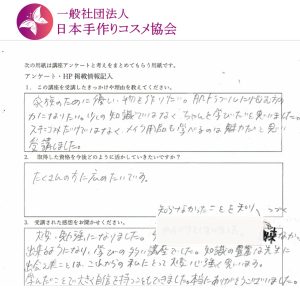 一般社団法人
日本手作りコスメ協会
次の用紙は講座アンケートと考えをまとめてもらう用紙です。
アンケート・HP掲載情報記入
1. この講座を受講したきっかけや理由を教えてください。
家族のために優しい物を作りたい。肌トラブルに
になりたい。少しの知識ではなく ちゃんと学びたいと思いました。
スキンコスメだけではなく、メイク用品も学べるのは魅力だと思い
受講しました。
2. 取得した資格を今後どのように活かしていきたいですか?
たくさんの方に広めたいです。
知らなかったことを知り、
3. 受講された感想をお聞かせください。
大変勉強になりました。
出来るようになり、学びの多い講座でした。知識の豊富な先生に
出会えたことは、これからの私にとって大変心強く思います。
学んだことで大きく自信を持つこともできました。本当にありがとうございました。